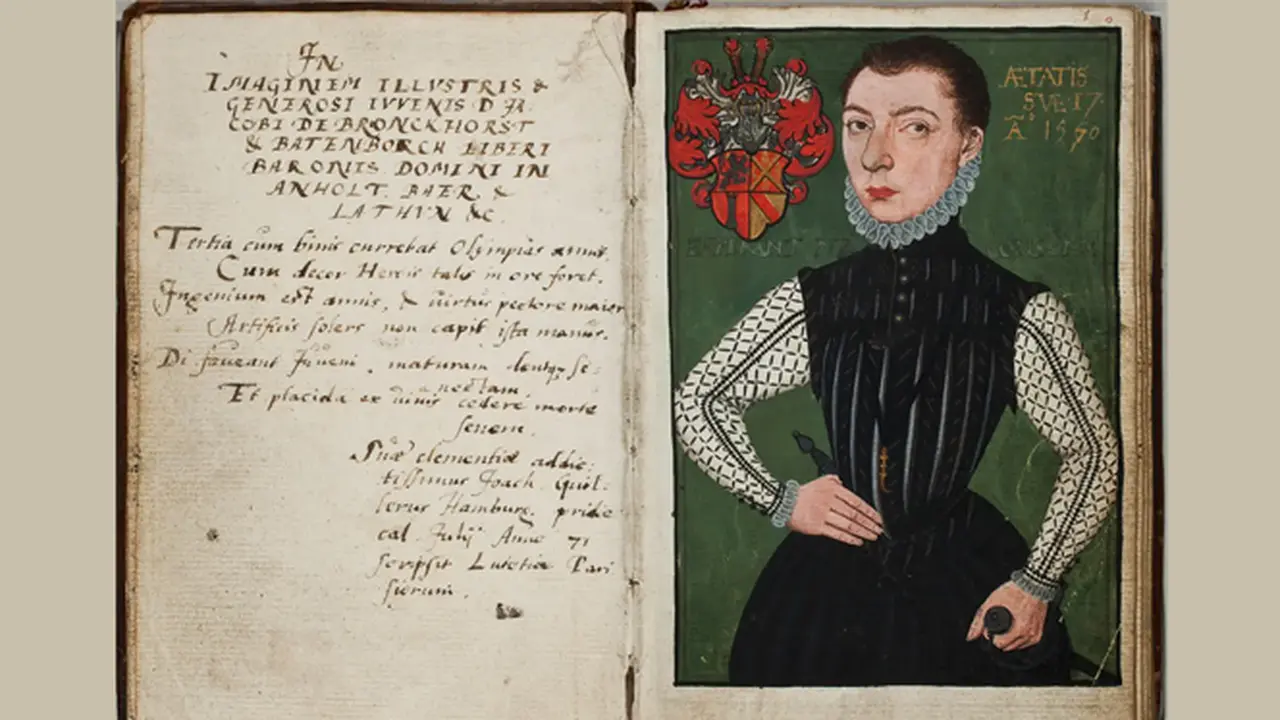 IN
IMAGINEM ILLVSTRIS &
GENEROSI IVVENIS D. JA
COBI DE BRONCKHORST
& BATENBORCH LIBERI
BARONIS DOMINI IN
ANHOLT. BAER. &
LATHVN &c.
Tertia cum binis currebat Olympias annis.
Cum decor Herois talis in ore foret.
Ingenium est annis, & virtus pectore maior
Artificis solers non capit ista manus.
Di faueant Juueni, maturam dentq3 se:
nectam
Et placida ex cedere morte
senem.
Suæ clementiæ addic:
tissimus Joach. Guil:
lerus Hamburg. pridie
cal. Julij Anno 71
scripsit Lutetiæ Pari
siorum.
ÆTATIS
SVE 17
A° 1570